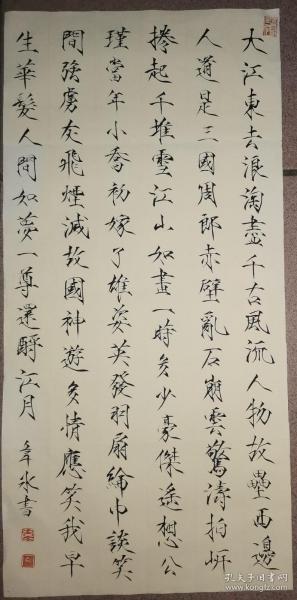 大江東去浪淘盡千古風流人物故壘西邊
人道是三國周郎赤壁亂石崩雲驚濤拍岸
捲起千堆雪江山如畫一時多少豪傑遙想公
瑾當年小喬初嫁了雄姿英發羽扇綸巾談笑
間強虜灰飛煙滅故國神遊多情應笑我早
生華髮人間如夢一尊還酹江月 冰書
孔夫子旧书网